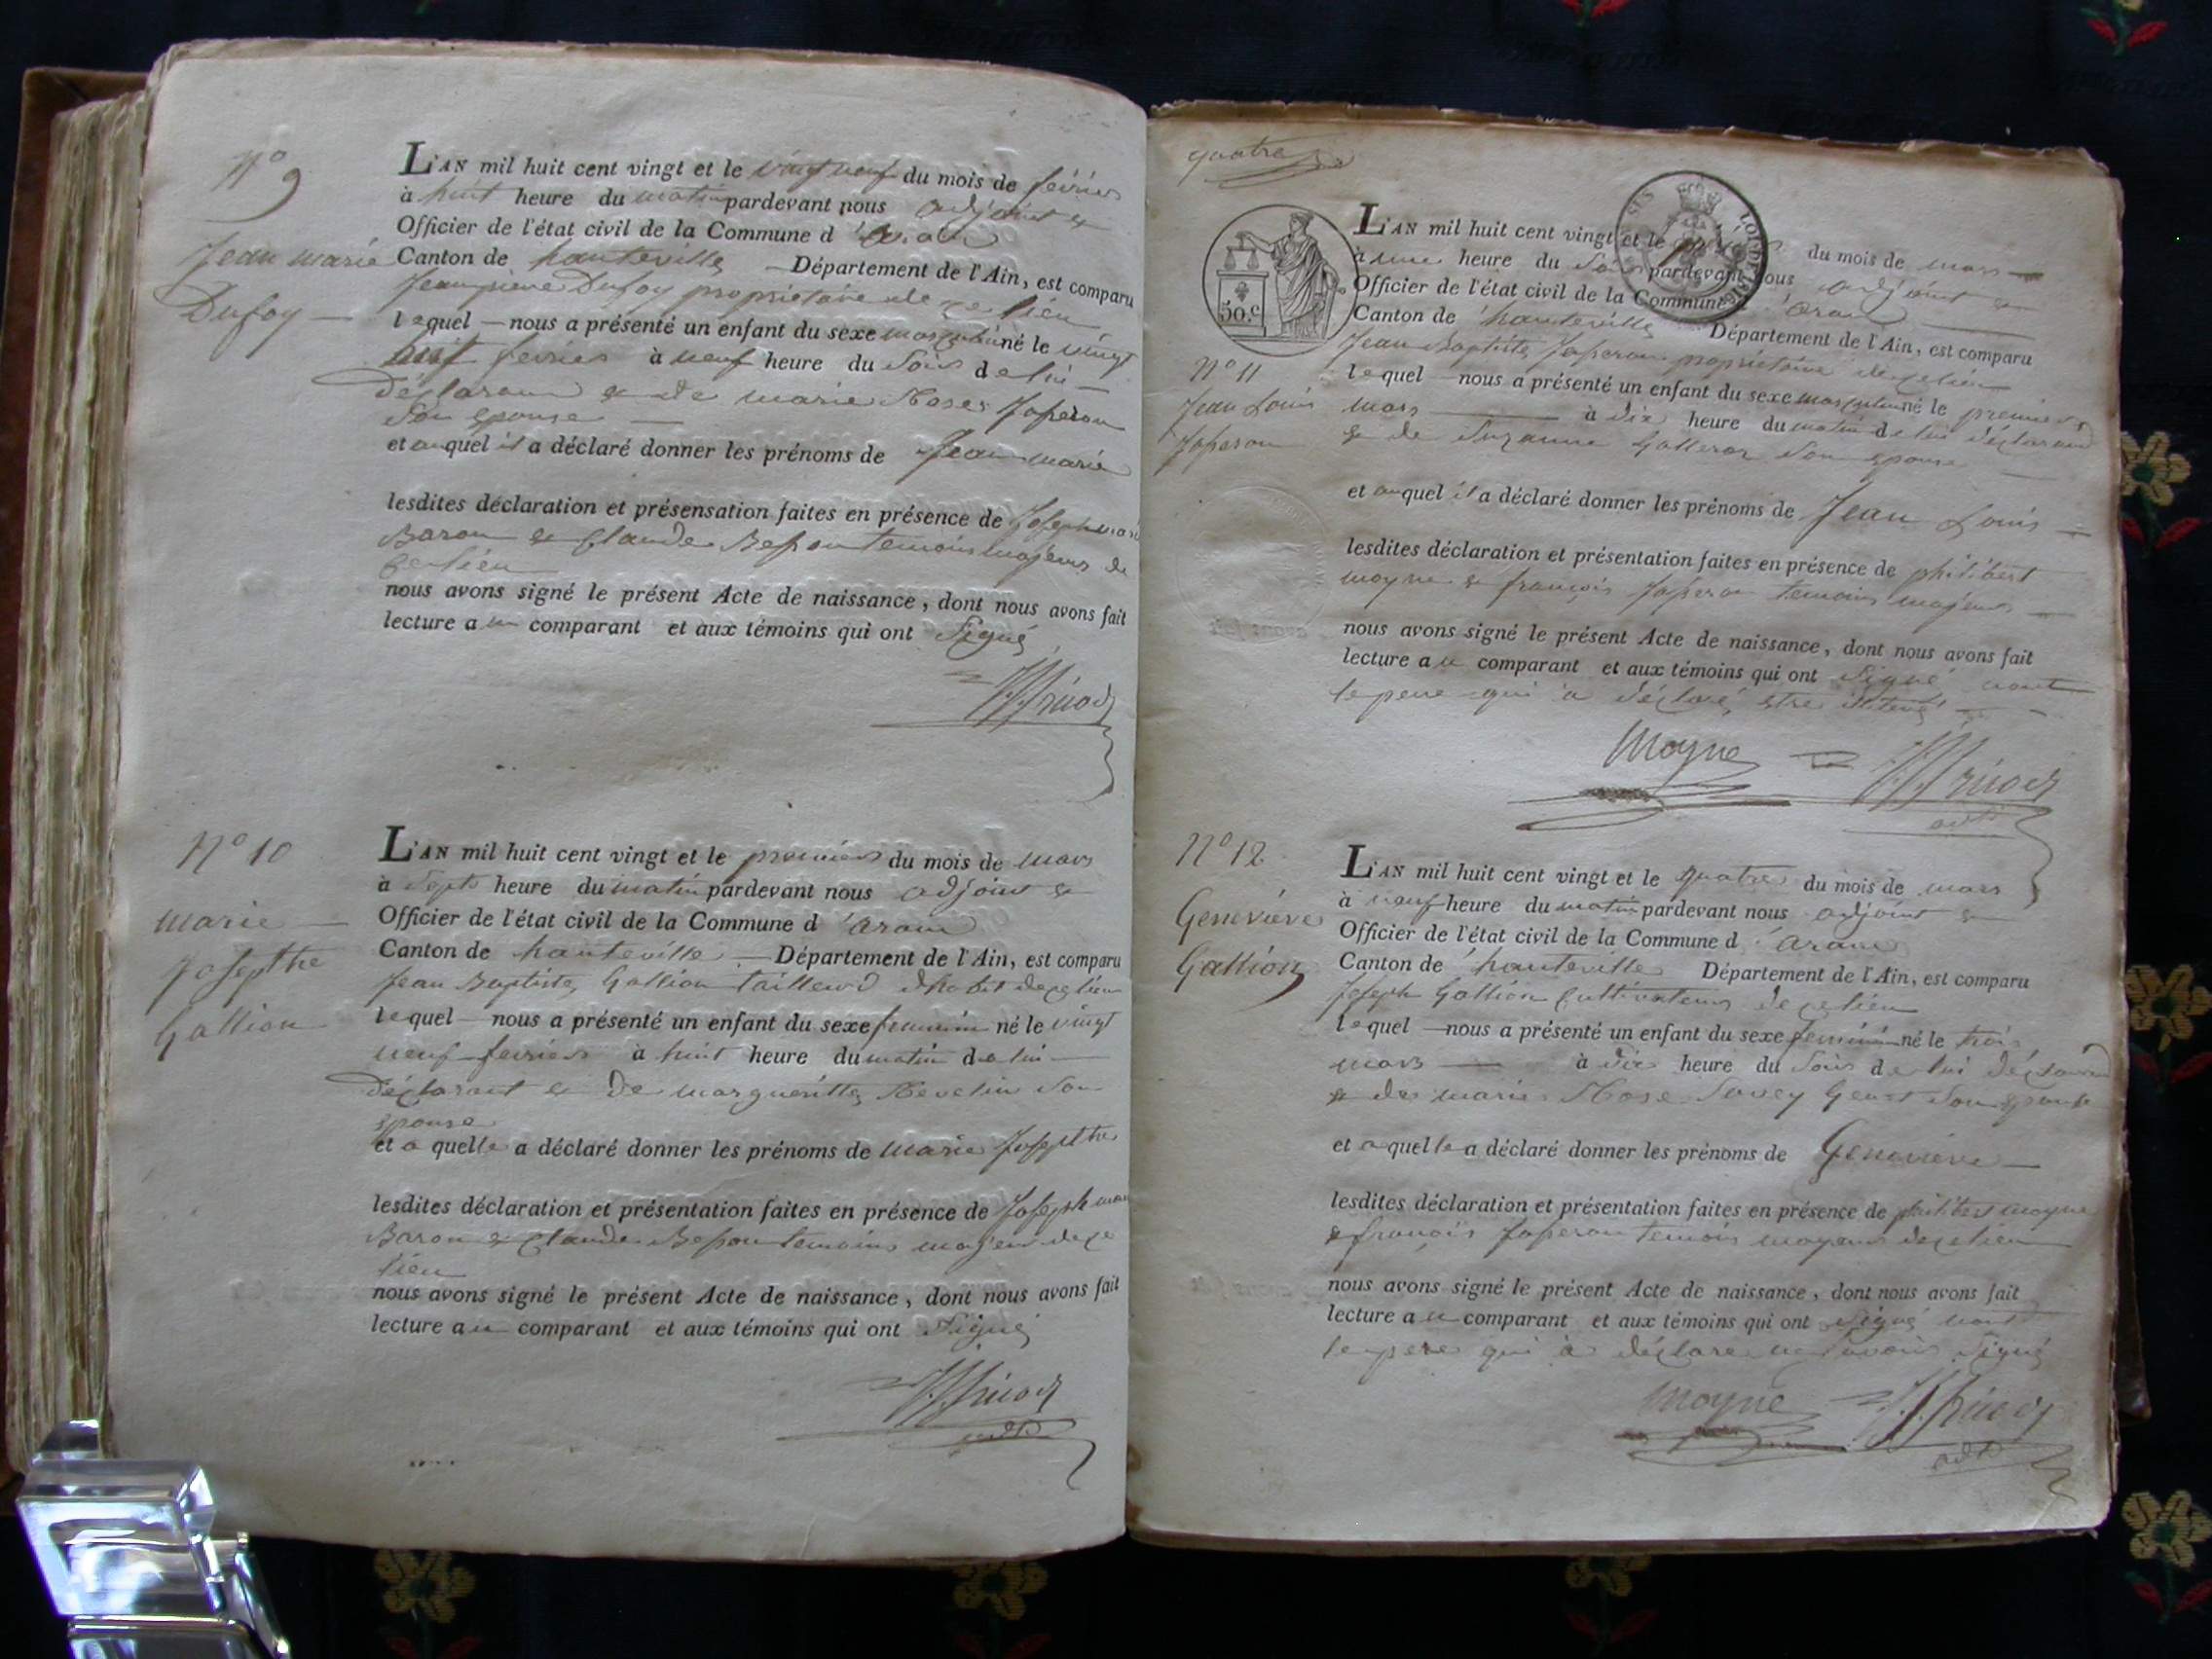 N.º 9
Jean marie
Dufoy
L'AN mil huit cent vingt et le vingt neuf du mois de fevrier
à huit heure du matin pardevant nous adjoint &
Officier de l'état civil de la Commune d
Canton de hauteville Département de l'Ain, est comparu
Jean pierre Dufoy proprietaire de ce lieu
lequel nous a présenté un enfant du sexe masculin né le vingt
huit fevrier à neuf heure du soir de lui
déclarant & de marie Rose Joperon
son epouse
et auquel il a déclaré donner les prénoms de Jean marie
lesdites déclaration et présensation faites en présence de Joseph marie
Baron & Claude temoins majeurs de
ce lieu
nous avons signé le présent Acte de naissance, dont nous avons fait
lecture au comparant et aux témoins qui ont signé
N.º 10
marie
Josepthe
Gallion
L'AN mil huit cent vingt et le premier du mois de mars
à sept heure du matin pardevant nous adjoint &
Officier de l'état civil de la Commune d'aranc
Canton de hauteville Département de l'Ain, est comparu
Jean Baptiste Gallion tailleur d'habit de ce lieu
lequel nous a présenté un enfant du sexe feminin né le vingt
neuf fevrier à huit heure du matin de lui
déclarant & de margueritte son
epouse
et a quelle a déclaré donner les prénoms de marie Josepthe
lesdites déclaration et présentation faites en présence de Joseph marie
Baron & Claude temoins majeur de ce
lieu
nous avons signé le présent Acte de naissance, dont nous avons fait
lecture au comparant et aux témoins qui ont signé
adjt
quatre
50.c
N.º 11
Jean Louis
Joperon
L'AN mil huit cent vingt et le du mois de mars
à une heure du soir pardevant nous adjoint &
Officier de l'état civil de la Commune d'aranc
Canton de hauteville Département de l'Ain, est comparu
Jean Baptiste Joperon propriétaire de ce lieu
lequel nous a présenté un enfant du sexe masculin né le premier
mars à dix heure du matin de lui déclarant
& de Suzanne son epouse
et auquel il a déclaré donner les prénoms de Jean Louis
lesdites déclaration et présentation faites en présence de philibert
moyne & françois Joperon temoins majeurs
nous avons signé le présent Acte de naissance, dont nous avons fait
lecture au comparant et aux témoins qui ont signé
le pere qui a déclaré
Moyne
adjt
N.º 12
Genevieve
Gallion
L'AN mil huit cent vingt et le quatre du mois de mars
à neuf heure du matin pardevant nous adjoint &
Officier de l'état civil de la Commune d'aranc
Canton de hauteville Département de l'Ain, est comparu
Joseph Gallion cultivateur de ce lieu
lequel nous a présenté un enfant du sexe feminin né le trois
mars à dix heure du soir de lui déclarant
& de marie Rose Savey son epouse
et a quelle a déclaré donner les prénoms de Genevieve
lesdites déclaration et présentation faites en présence de philibert moyne
& françois Joperon temoins majeurs de ce lieu
nous avons signé le présent Acte de naissance, dont nous avons fait
lecture au comparant et aux témoins qui ont signé
le pere qui a déclare ne signé
moyne
adjt